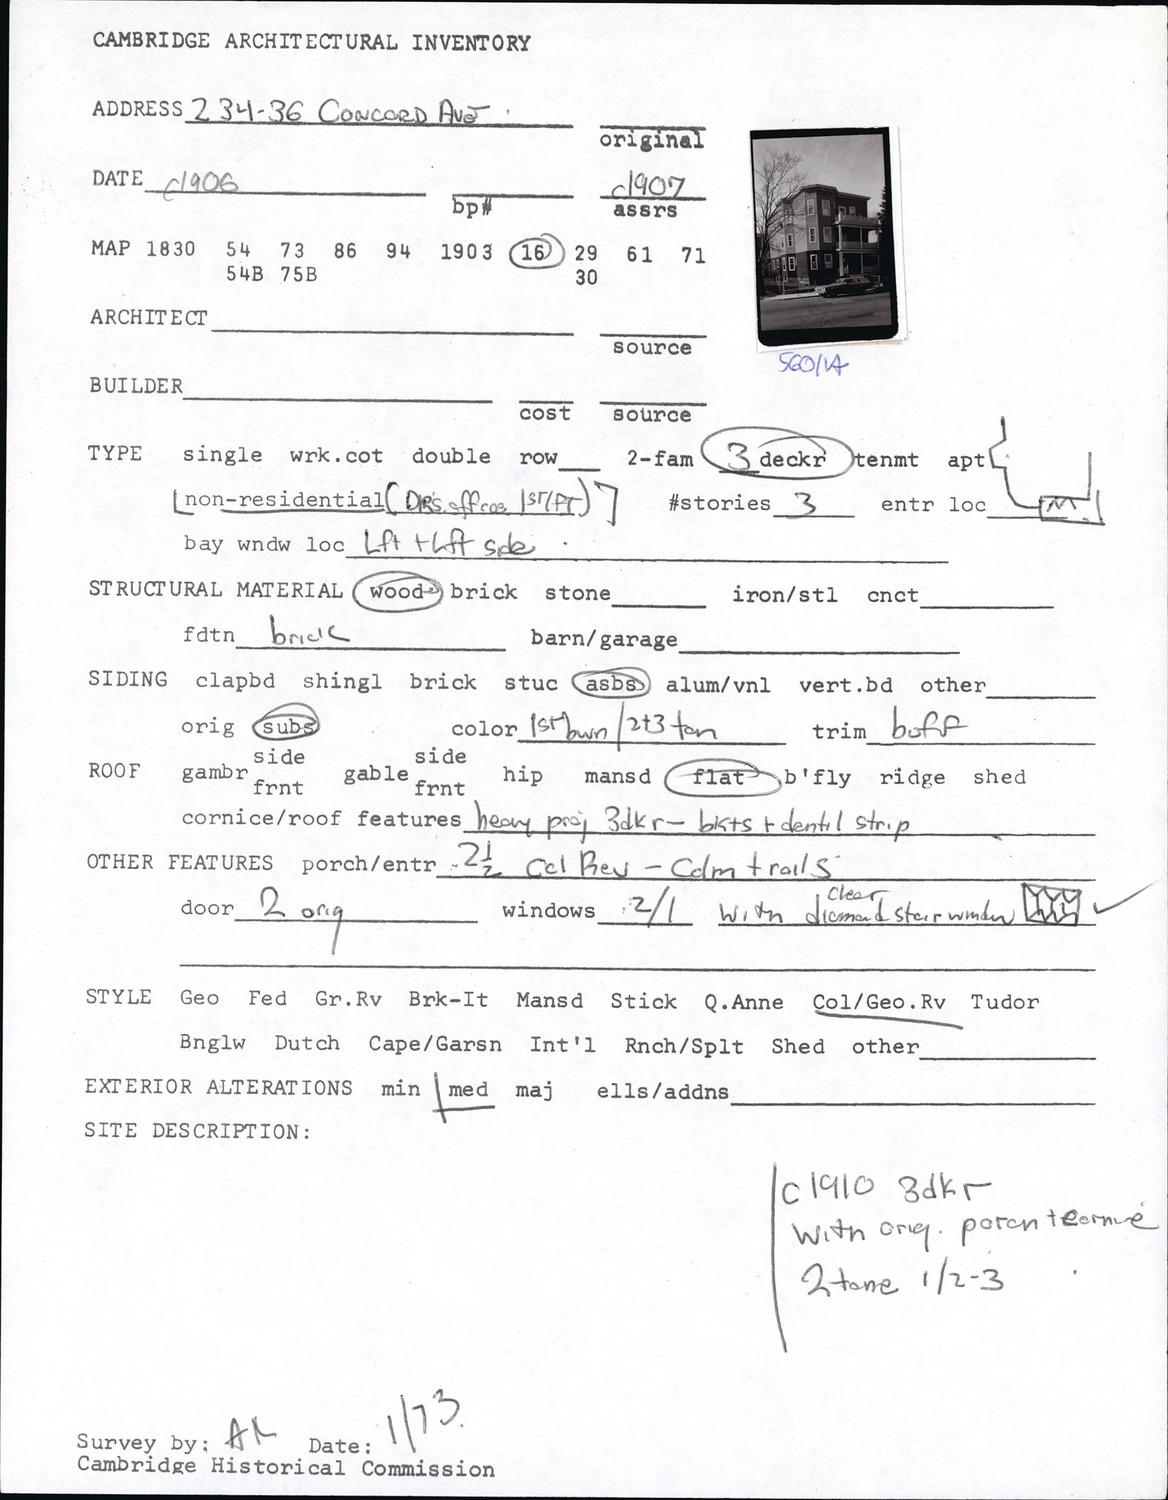 CAMBRIDGE ARCHITECTURAL INVENTORY
ADDRESS 234-36 CONCORD AVE
original
DATE c1906 c1907
bp# assrs
MAP 1830 54 73 86 94 1903 16 29 61 71
54B 75B 30
ARCHITECT
source
560/1A
BUILDER
cost source
TYPE single wrk.cot double row 2-fam 3 deckr tenmt apt
[non-residential (DR's offces 1st/flr)] #stories 3 entr loc
bay wndw loc Lft + Lft side
STRUCTURAL MATERIAL wood brick stone iron/stl cnct
fdtn brick barn/garage
SIDING clapbd shingl brick stuc asbs alum/vnl vert.bd other
orig subs color 1st bwn/2+3 tan trim buff
side side
ROOF gambr gable hip mansd flat b'fly ridge shed
frnt frnt
cornice/roof features heavy proj 3dkr - bkts + dentil strip
OTHER FEATURES porch/entr 2½ Col Rev - Colm + rails
door 2 orig windows 2/1 with clear diamond stair window
STYLE Geo Fed Gr.Rv Brk-It Mansd Stick Q.Anne Col/Geo.Rv Tudor
Bnglw Dutch Cape/Garsn Int'l Rnch/Splt Shed other
EXTERIOR ALTERATIONS min med maj ells/addns
SITE DESCRIPTION:
c1910 3dkr
with orig. porch + cornice
2 tone 1/2-3
Survey by: Date: 1/73
Cambridge Historical Commission